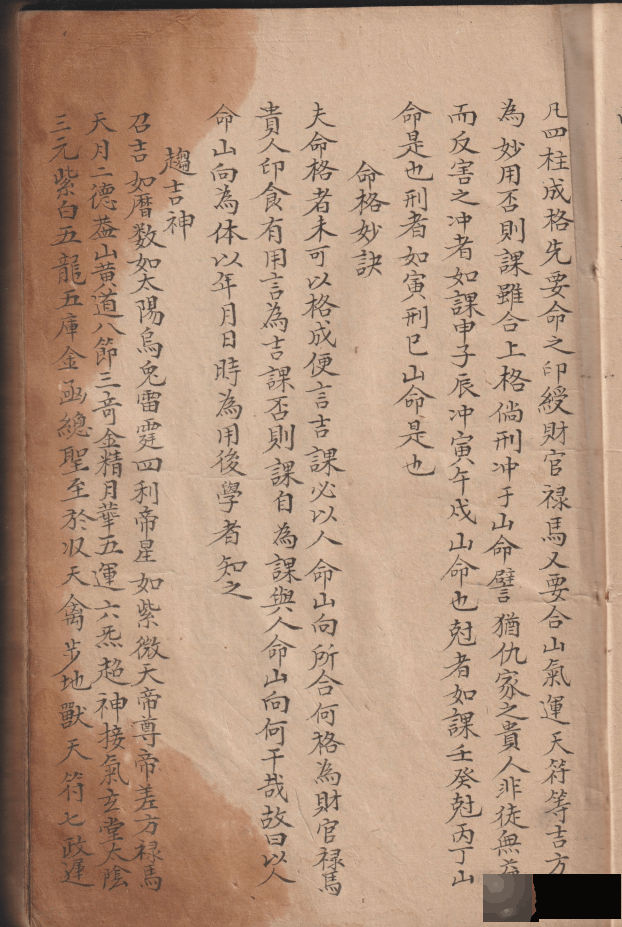 凡四柱成格先要命之印綬財官禄馬又要合山氣運天符等吉方
為妙用否則課雖合上格倘刑冲于山命譬猶仇家之貴人非徒無益
而反害之冲者如課申子辰冲寅午戌山命也尅者如課壬癸尅丙丁山
命是也刑者如寅刑巳山命是也
命格妙訣
夫命格者未可以格成便言吉課必以人命山向所合何格為財官禄馬
貴人印食有用言為吉課否則課自為課與人命山向何干哉故曰以人
命山向為体以年月日時為用後學者知之
趨吉神
召吉如曆数如太陽烏兔雷霆四利帝星如紫微天帝尊帝差方禄馬
天月二德蓋山黄道八節三奇金精月華五運六炁超神接氣玄堂太陰
三元紫白五龍五庫金函總聖至於収天禽步地獸天符七政運